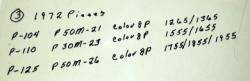 ③ 1972 Pieces
P-104 P 50M-21 color 8P 1265/1365
P-110 P 30M-23 color 8P 1555/1655
P-125 P 50M-26 color 8P 1755/1855/1955